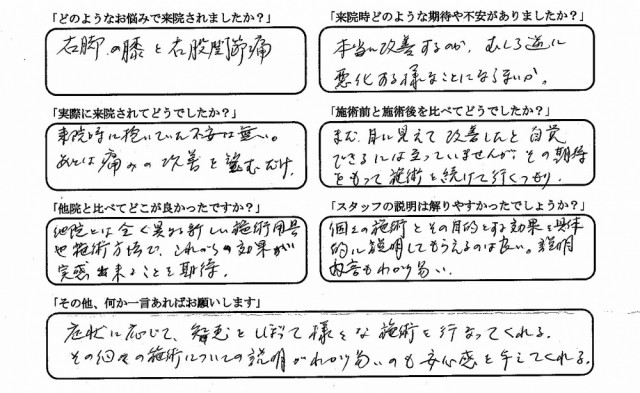 「どのようなお悩みで来院されましたか？」
右脚の膝と右股関節痛
「来院時どのような期待や不安がありましたか？」
本当に改善するのか、むしろ逆に
悪化する様なことになるまいか。
「実際に来院されてどうでしたか？」
来院時に抱いていた不安は無い。
あとは痛みの改善を望むだけ。
「施術前と施術後を比べてどうでしたか？」
まだ、目に見えて改善したと自覚
できるには至っていませんが、その期待
をもって施術を続けて行くつもり
「他院と比べてどこが良かったですか？」
他院とは全く異なる新しい施術用具
や施術方法で、これからの効果が
実感出来ることを期待。
「スタッフの説明は解りやすかったでしょうか？」
個々の施術とその目的とする効果を具体
的に説明してもらえるのは良い。説明
内容もわかり易い。
「その他、何か一言あればお願いします」
症状に応じて、智恵をしぼって様々な施術を行なってくれる。
その個々の施術についての説明がわかり易いのも安心感を与えてくれる。